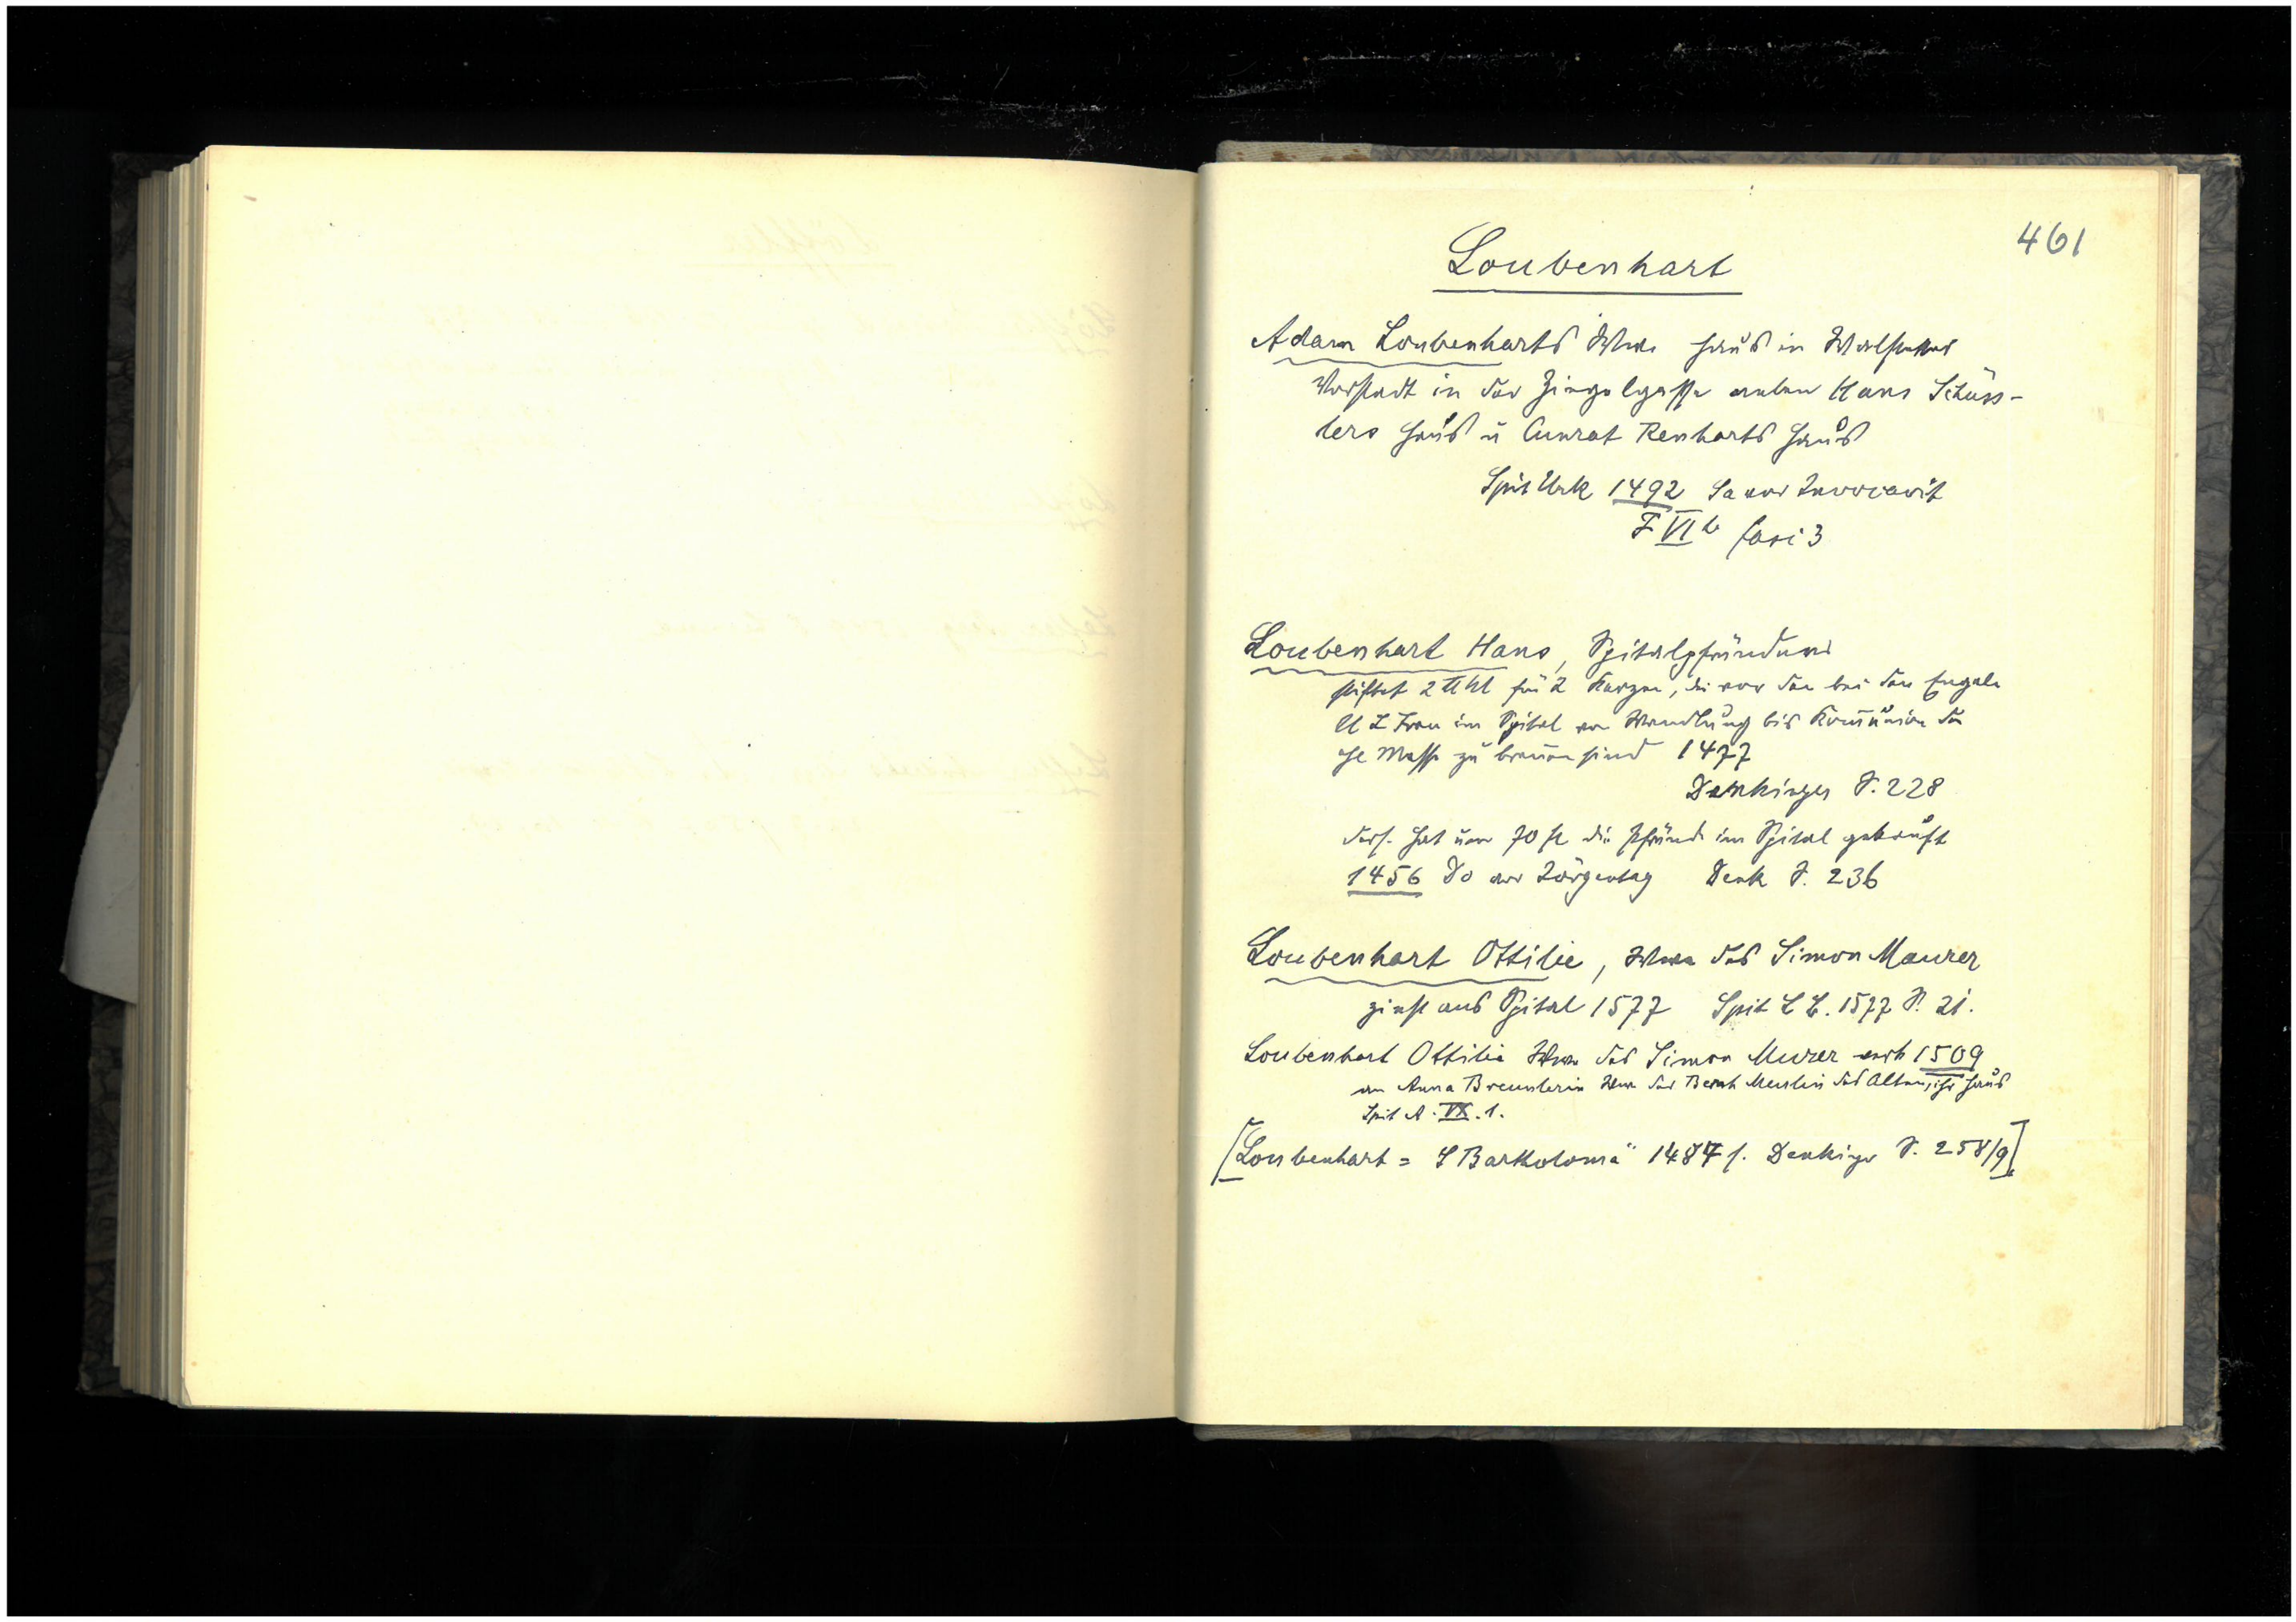 461
Loubenhart
Adam Loubenharts Wwe Haus in Waldstetter
Vorstadt in der Zingelgasse neben Hans Schüss-
lers Haus u Cunrat Renharts Haus
Spit Urk 1492 Sa vor Invocavit
F VI b fasc 3
Loubenhart Hans, Spitalpfründner
stiftet 2 ℔ hl für 2 Kerzen, die vor den bei den Engeln
U L Frau im Spital von Wandlung bis Kom̄union der
hl Messe zu bren̄en sind 1477
Denkinger S. 228
ders. hat um 70 fl die Pfründ im Spital gekauft
1456 Do vor Jörgentag Denk S. 236
Loubenhart Ottilie, Wwe des Simon Maurer
zinst ans Spital 1577 Spit L B. 1577 S. 21.
Loubenhart Ottilia Wwe des Simon Murer verk 1509
an Anna Breunlerin Wwe des Bernh Meulin des Alten, ihr Haus
Spit A. IX. 1.
[Loubenhart = S Bartholomä 1484 f. Denkinger S. 258/9]